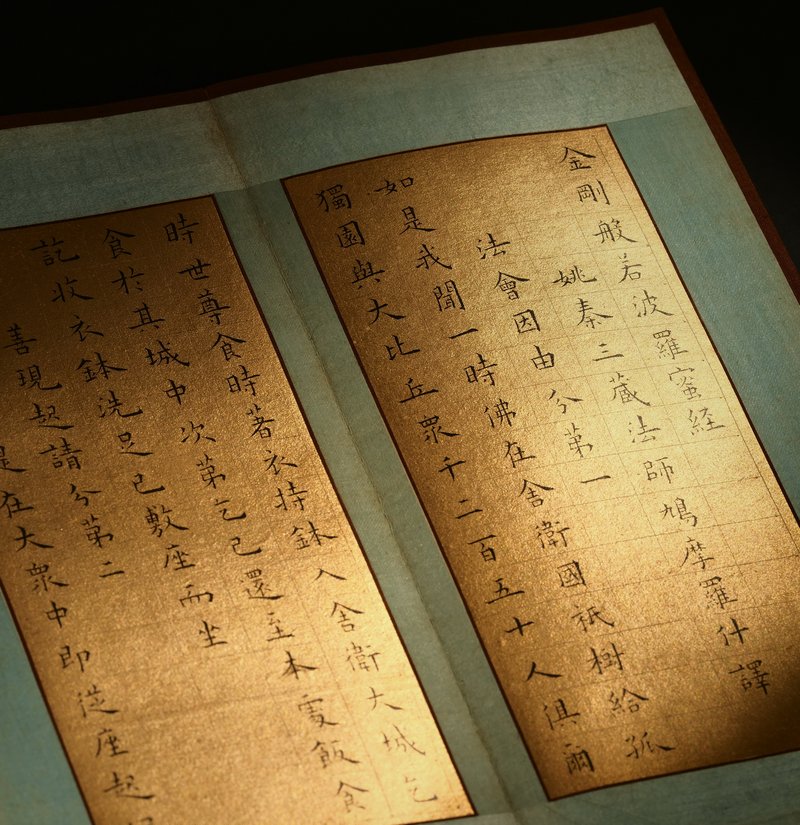 金剛般若波羅蜜経
姚秦三藏法師鳩摩羅什譯
法會因由分第一
如是我聞一時佛在舍衛國祇樹給孤
獨園與大比丘眾千二百五十人俱爾
時世尊食時著衣持鉢入舍衛大城乞
食於其城中次第乞已還至本處飯食
訖收衣鉢洗足已敷座而坐
善現起請分第二
在大眾中即從座起